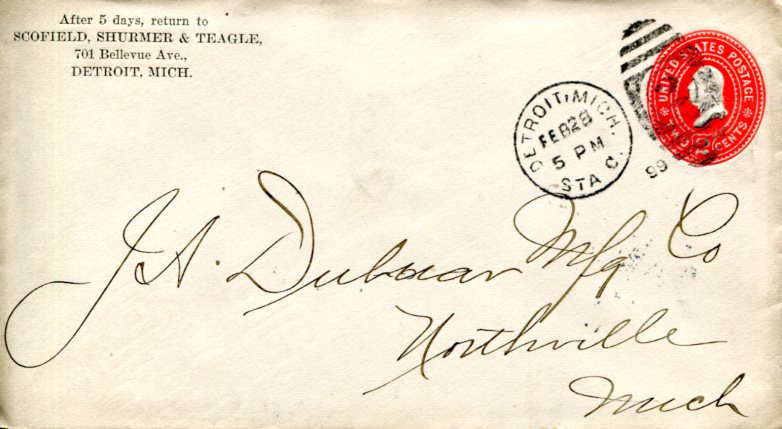 After 5 days, return to
SCOFIELD, SHURMER & TEAGLE,
701 Bellevue Ave.,
DETROIT, MICH.
UNITED STATES POSTAGE
TWO CENTS
DETROIT, MICH.
FEB 28
5 PM
STA C.
99
J. A. Dubuar Mfg Co
Northville
Mich